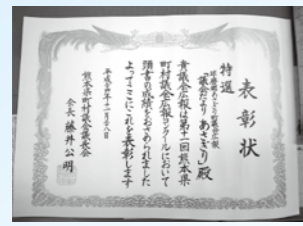 表彰状
特選
球磨郡あさぎり町議会広報
「議会だより あさぎり」殿
貴議会広報は第十一回熊本県
町村議会広報コンクールにおいて
頭書の成績をおさめられました
よってここにこれを表彰します
熊本県町村議会議長会
会長 藤井公明